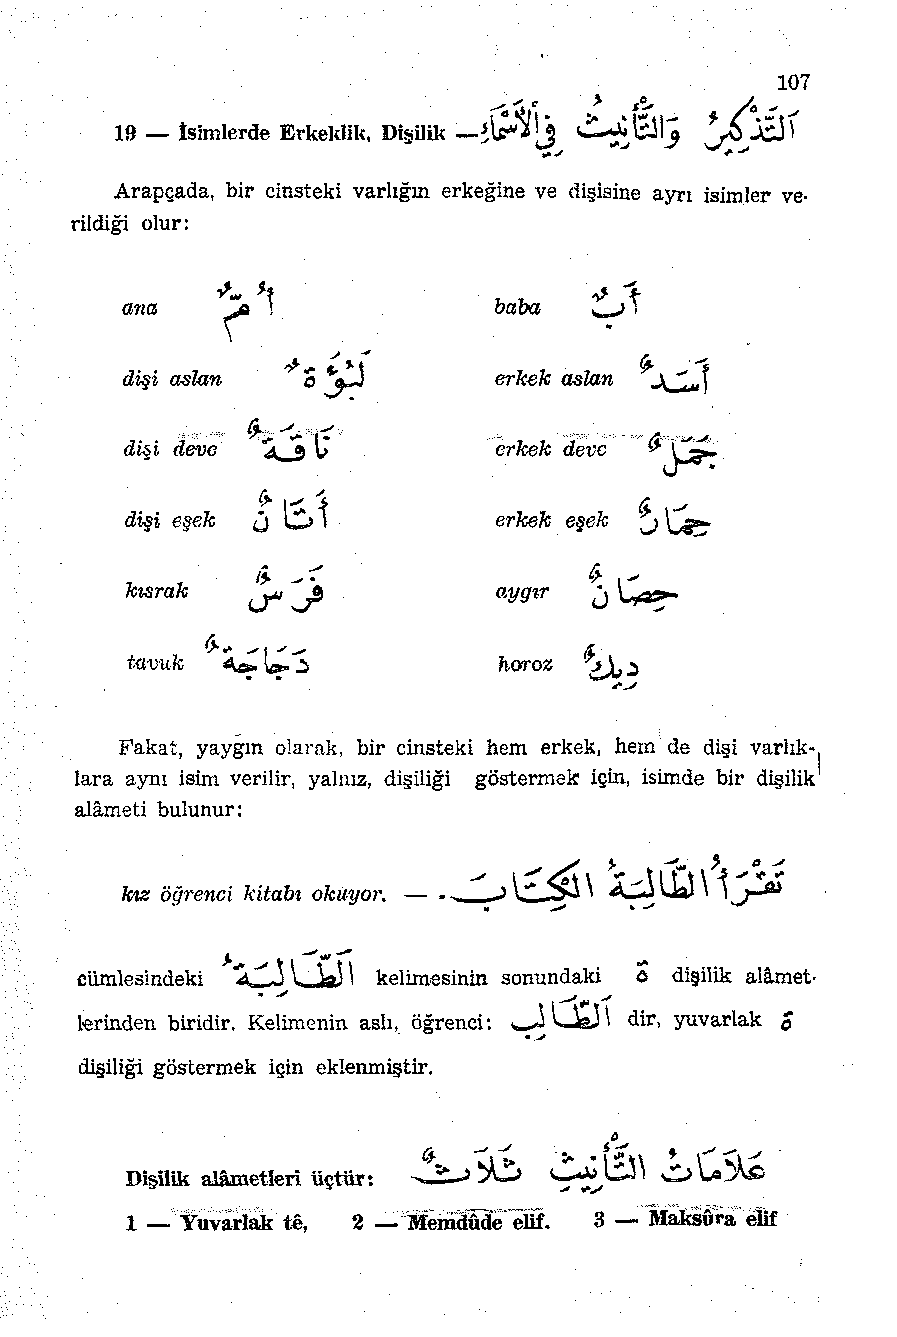 107
19 — İsimlerde Erkeklik, Dişilik — اَلتَّذْكِيرُ وَالتَّأْنِيثُ فِي الْأَسْمَاءِ
Arapçada, bir cinsteki varlığın erkeğine ve dişisine ayrı isimler ve-
rildiği olur:
ana أُمٌّ baba أَبٌ
dişi aslan لَبُؤَةٌ erkek aslan أَسَدٌ
dişi deve نَاقَةٌ erkek deve جَمَلٌ
dişi eşek أَتَانٌ erkek eşek حِمَارٌ
kısrak فَرَسٌ aygır حِصَانٌ
tavuk دَجَاجَةٌ horoz دِيكٌ
Fakat, yaygın olarak, bir cinsteki hem erkek, hem de dişi varlık-
lara aynı isim verilir, yalnız, dişiliği göstermek için, isimde bir dişilik
alâmeti bulunur:
kız öğrenci kitabı okuyor. — تَقْرَأُ الطَّالِبَةُ الْكِتَابَ.
cümlesindeki اَلطَّالِبَةُ kelimesinin sonundaki ة dişilik alâmet-
lerinden biridir. Kelimenin aslı, öğrenci: اَلطَّالِب dir, yuvarlak ة
dişiliği göstermek için eklenmiştir.
Dişilik alâmetleri üçtür: عَلَامَاتُ التَّأْنِيثِ ثَلَاثٌ
1 — Yuvarlak tê, 2 — Memdûde elif. 3 — Maksûra elif